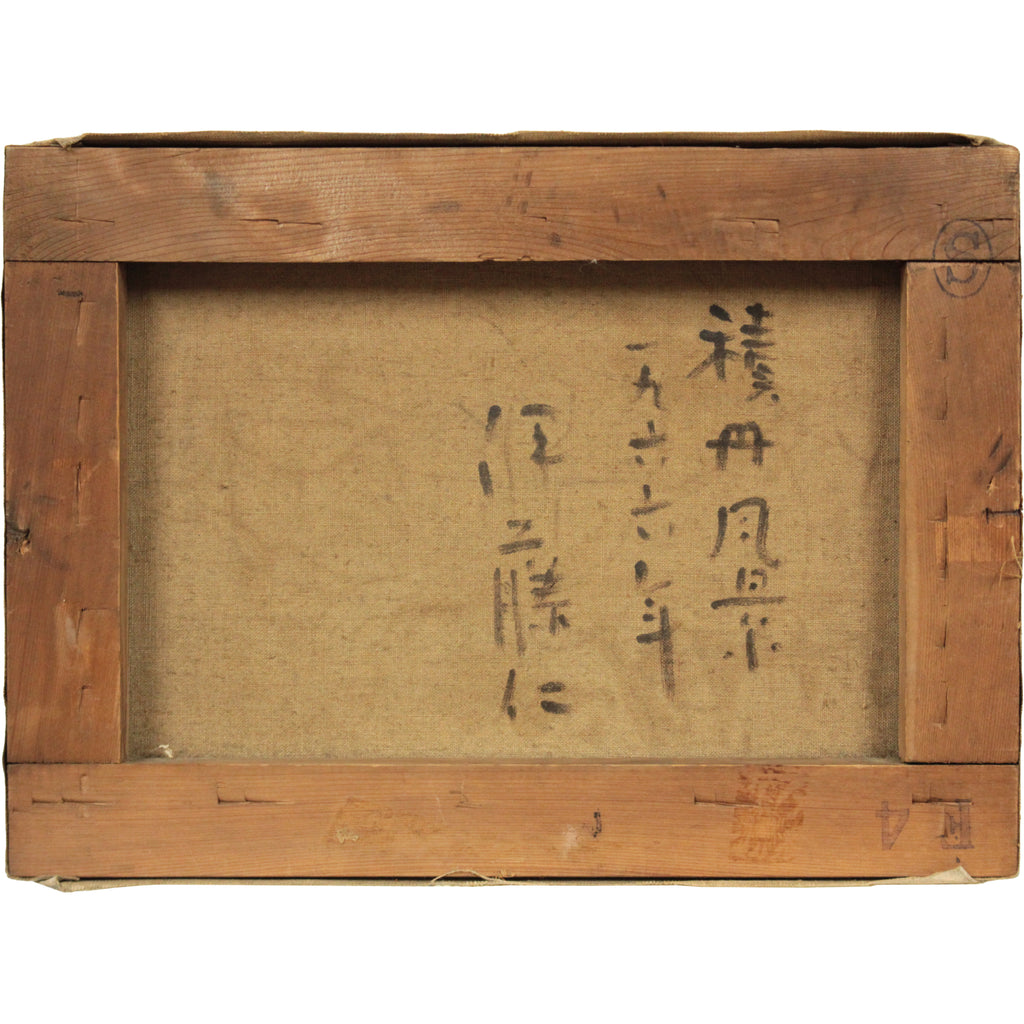 積丹風景
一九六六年
伊藤仁
S
F4